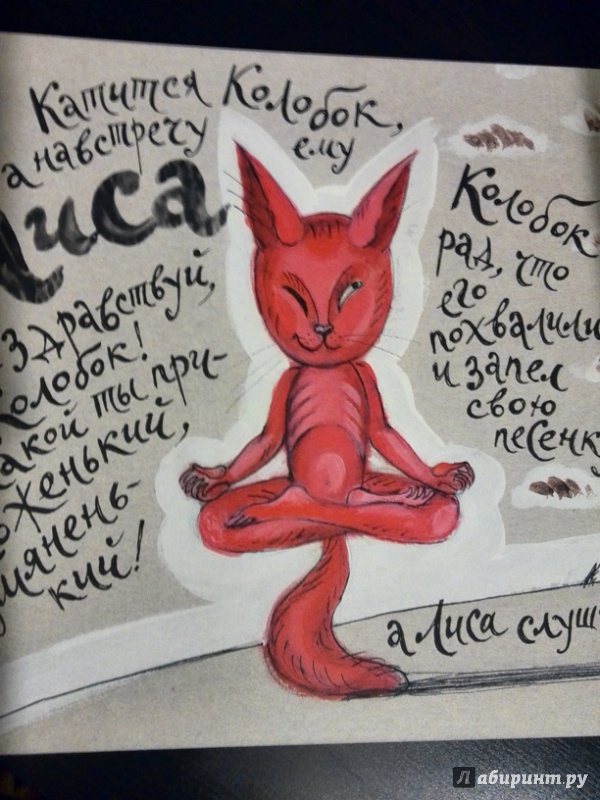 Катится Колобок,
а навстречу ему
Лиса
Здравствуй,
Колобок!
Какой ты при-
гоженький,
румянень-
кий!
Колобок
рад, что
его
похвалили
и запел
свою
песенку
а Лиса слуш
Лабиринт.ру